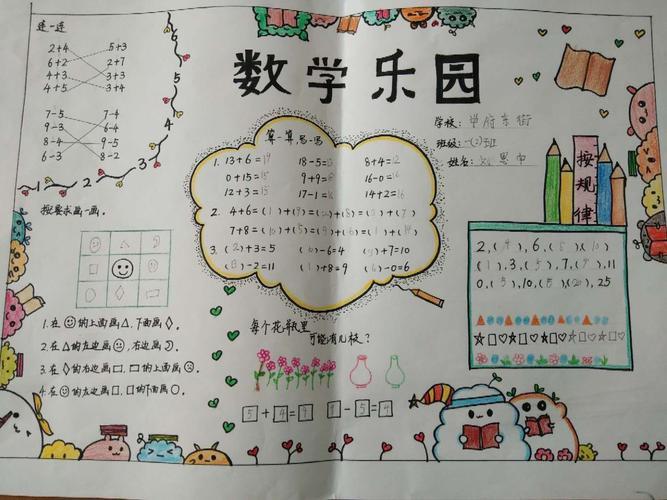 连一连
2+4 5+3
6+2 2+7
4+3 3+3
4+5 3+4
7-5 7-4
9-3 6-4
8-4 9-5
6-3 8-2
1 2 3 4 5 6
数学乐园
学校：
班级：一(2)班
姓名：
算一算，思一思
1. 13+6=19 18-5=13 8+4=12
0+15=15 9+9=18 16-0=16
12+3=15 17-1=16 14+2=16
3. (2)+3=5 ( )-6=4 ( )+7=10
( )-2=11 (1)+8=9 ( )-0=6
按规律
2,(4),6,(8),(10)
(1),3,(5),7,(9),11
0,(5),10,( ),(20),25
按要求画一画。
1.在☺的上面画△,下面画◇。
2.在△的左边画☹,右边画。
3.在◇的右边画□,□的上面画○。
4.在☺的左边画□,□的下面画○。
每个花瓶里
可能有几枝？
5+4=9 9-5=4